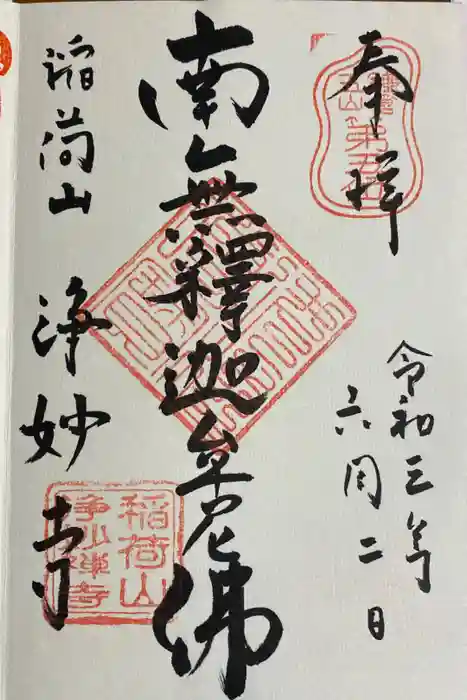 奉拝
鎌倉
五山
第五位
令和三年
六月二日
南無釋迦牟尼佛
稲荷山
浄妙寺
稲荷山
浄妙禅寺